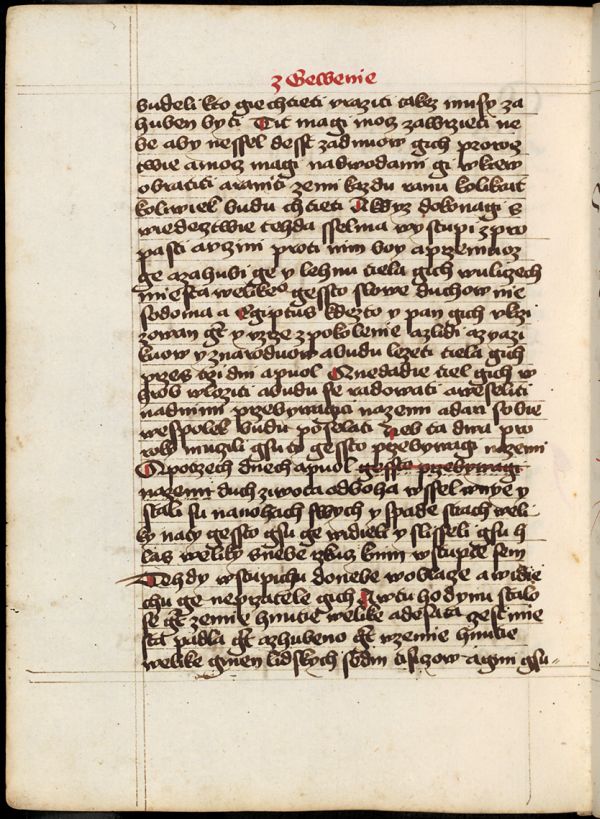 z Gewenie
budeli kto gie chtieti vraziti takez musy za
huben byti Tit magi moc zawrzieti ne
be aby nessel desst zadnuow gich proroz
twie a moc magi nad wodami gi w krew
obratiti a raniti zemi kazdu ranu kolikrat
kolwiek budu chtieti A kdyz dokonagi s
wiedeztwie tehda sselma wystupi z pro
pasti a vczini proti nim boy a przemoz
ge a zahubi ge y lehnu tiela gich w uliczech
miesta welikeo gessto slowe duchownie
sodoma a Egiptus kdezto y pan gich vkrzi
zowan gt y vzrze z pokolenie a z lidi a z yazi
kuow y z naroduow a budu lezeti tiela gich
przes trzi dni a puol A nedadie tiel gich w
hrob wloziti a budu se radowati a weseliti
nad nimi przebywagici na zemi a dari sobie
wespolek budu poselati Neb ta dwa pro
roky muczili gsu ty gessto przebywagi na zemi
A po trzech dnech a puol gessto przebywagi
na zemi duch ziwota od boha wssel w nye y
stali su na nohach swych y spade strach weli
ky na ty gessto gsu ge widieli y slisseli gsu h
las weliky s nebe rzkuc k nim wstupte sem
Tehdy wstupichu do nebe w oblaze a widie
chu ge neprzatele gich A w tu hodynu stalo
se gt zemie hnutie welike a desata czest mie
sta padla gt a zhubeno gt w zemie hnutie
welike gmen lidskych sedm tisizow a gini gsu